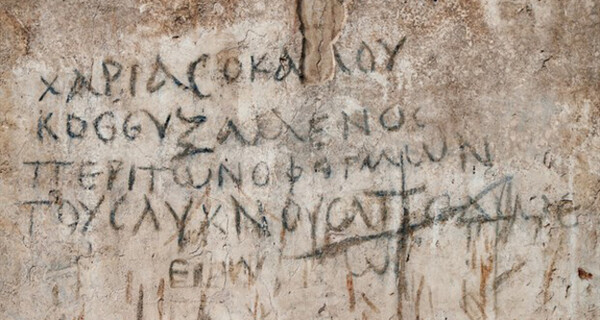 ΧΑΡΙΑϹΟΚΑΛΟΥ
ΚΟϹΕΥΞΑΜΕΝΟϹ
ΠΕΡΙΤΩΝΟΦΘΑΛΜΩΝ
ΤΟΥϹΛΥΧΝΟΥϹ